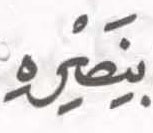 بِنَصِيْرِهِ